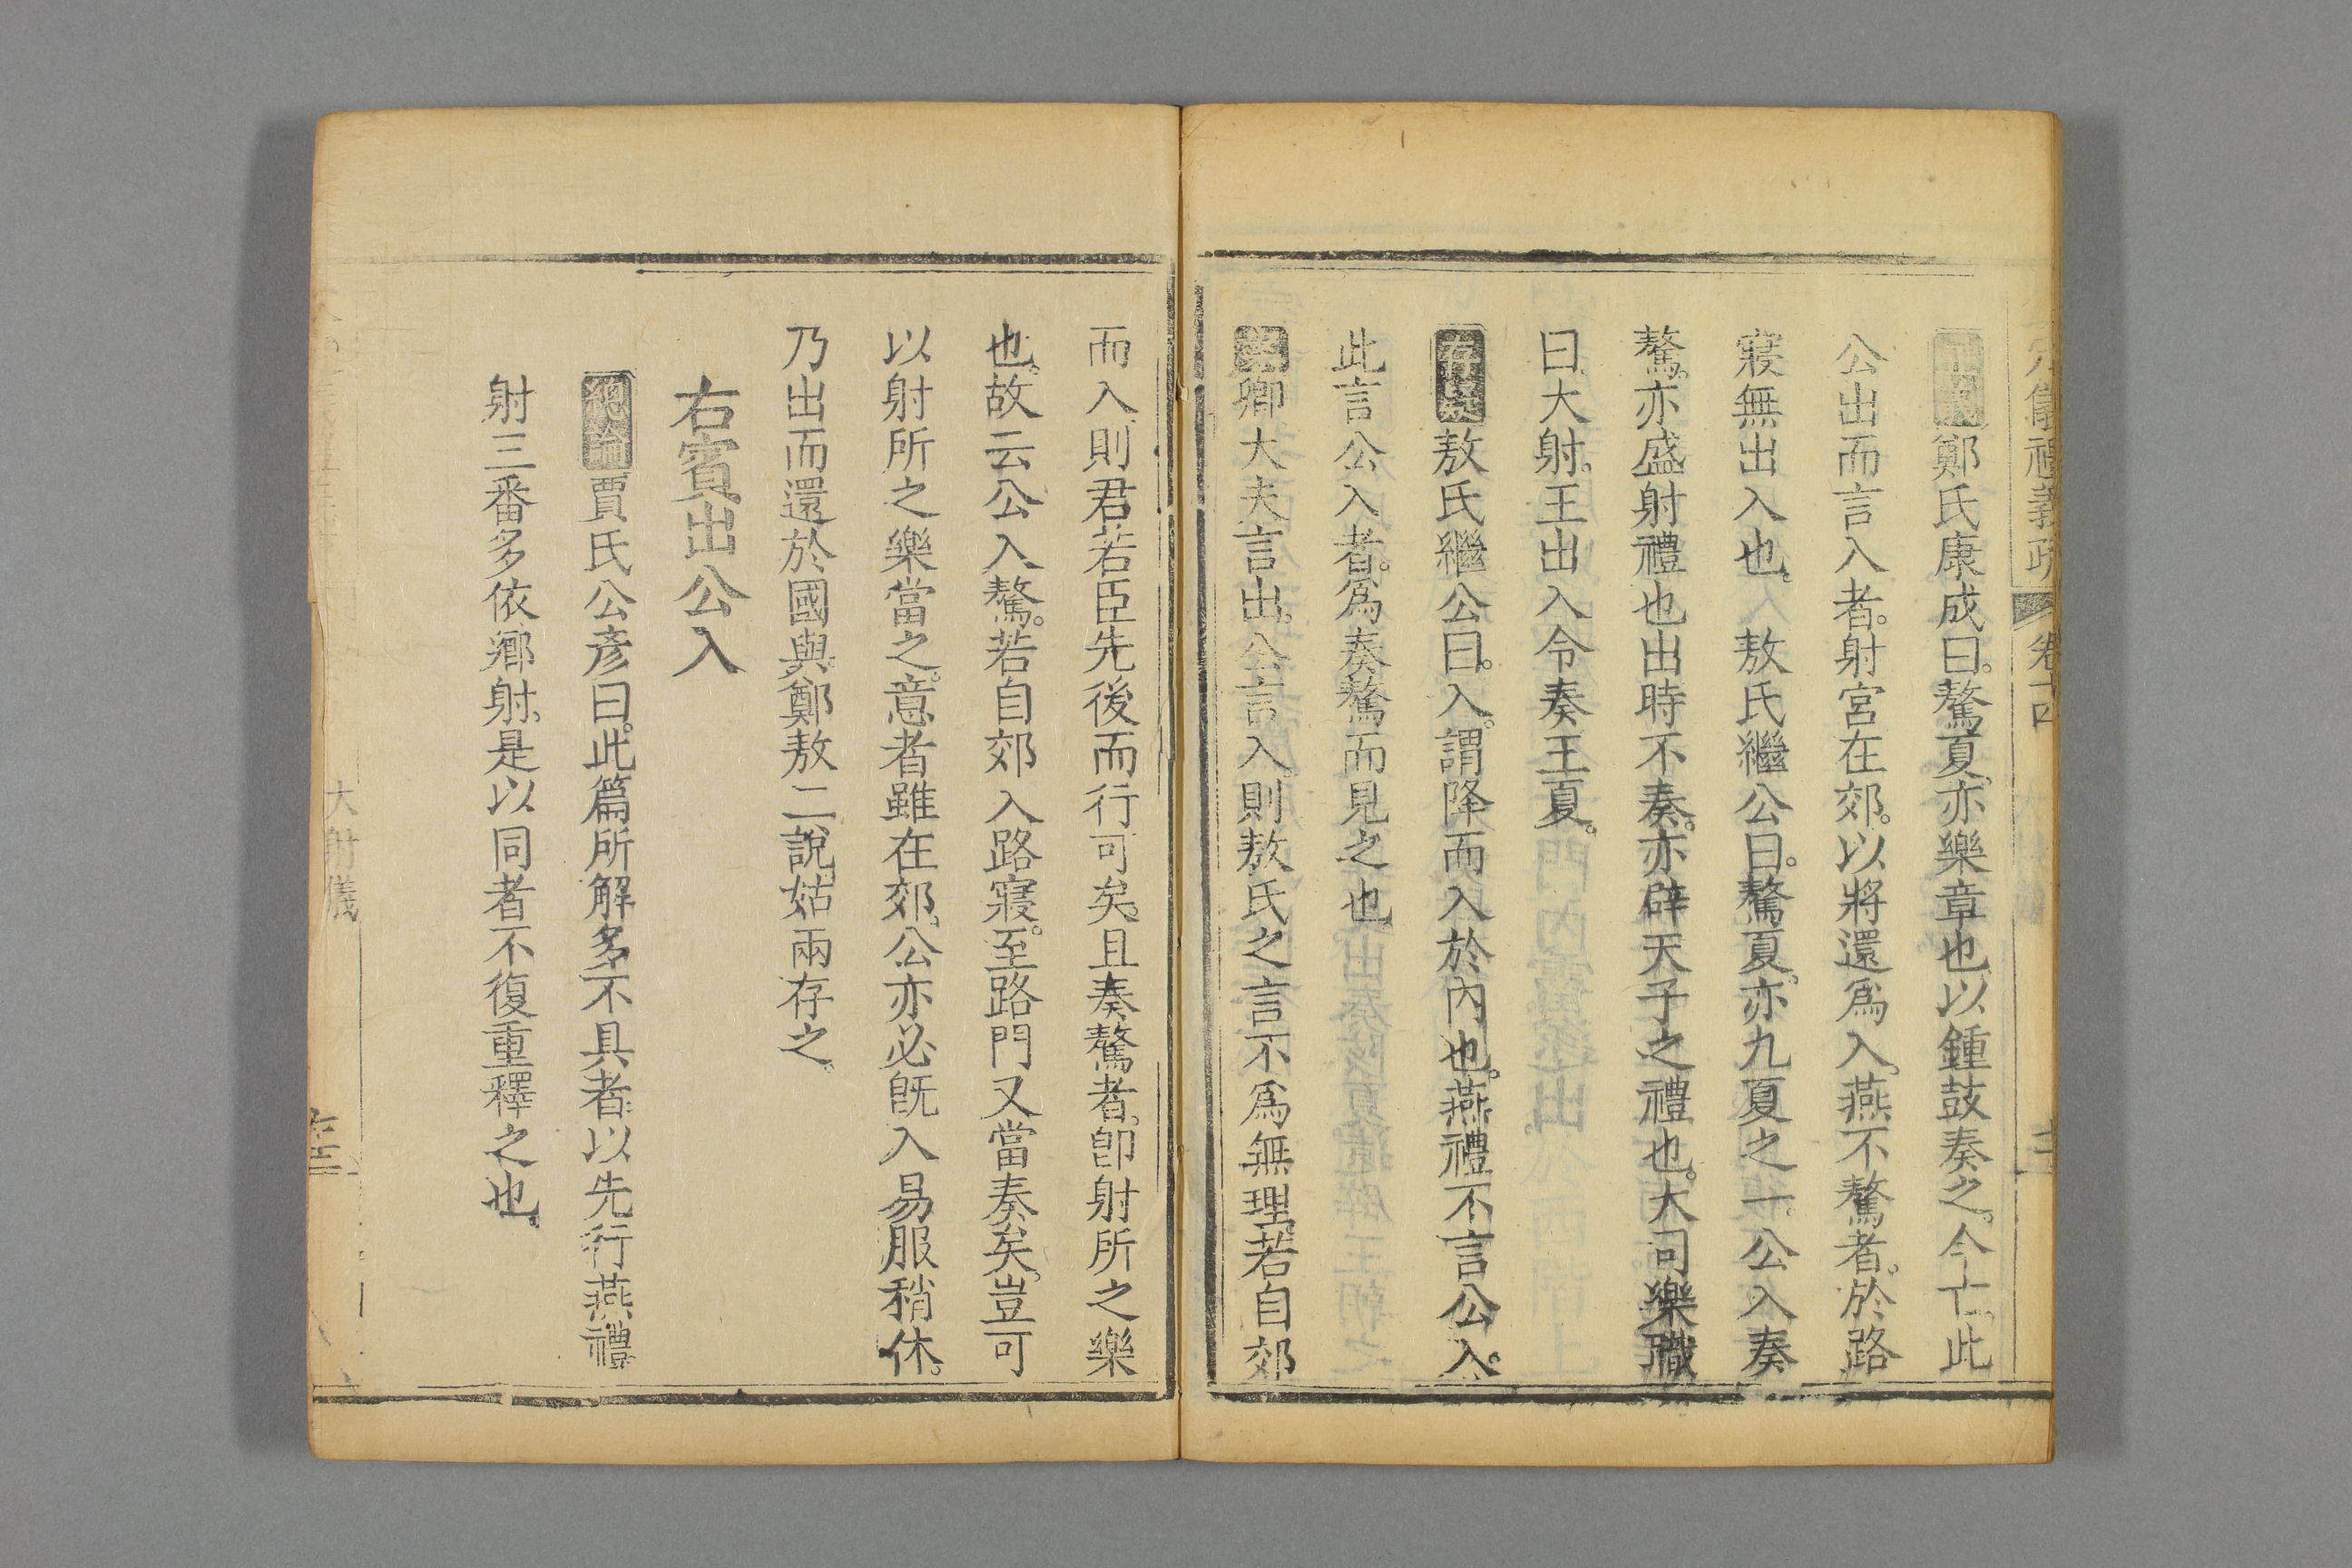 儀禮義疏 卷十四
正義鄭氏康成曰。驁夏。亦樂章也。以鍾鼓奏之。今亡。此
公出而言入者。射宮在郊。以將還爲入。燕不驁者。於路
寢無出入也。 敖氏繼公曰。驁夏。亦九夏之一。公入奏
驁。亦盛射禮也。出時不奏。亦辟天子之禮也。大司樂職
曰。大射。王出入令奏王夏。
存疑敖氏繼公曰。入。謂降而入於內也。燕禮不言公入。
此言公入者。爲奏驁而見之也。
案卿大夫言出。公言入。則敖氏之言不爲無理。若自郊
而入。則君若臣先後而行可矣。且奏驁者。卽射所之樂
也。故云公入驁。若自郊入路寢。至路門又當奏矣。豈可
以射所之樂當之。意者雖在郊。公亦必旣入易服稍休。
乃出而還於國與。鄭敖二說。姑兩存之。
右賓出公入
總論賈氏公彥曰。此篇所解多不具者。以先行燕禮
射三番多依鄉射。是以同者不復重釋之也。
大射儀